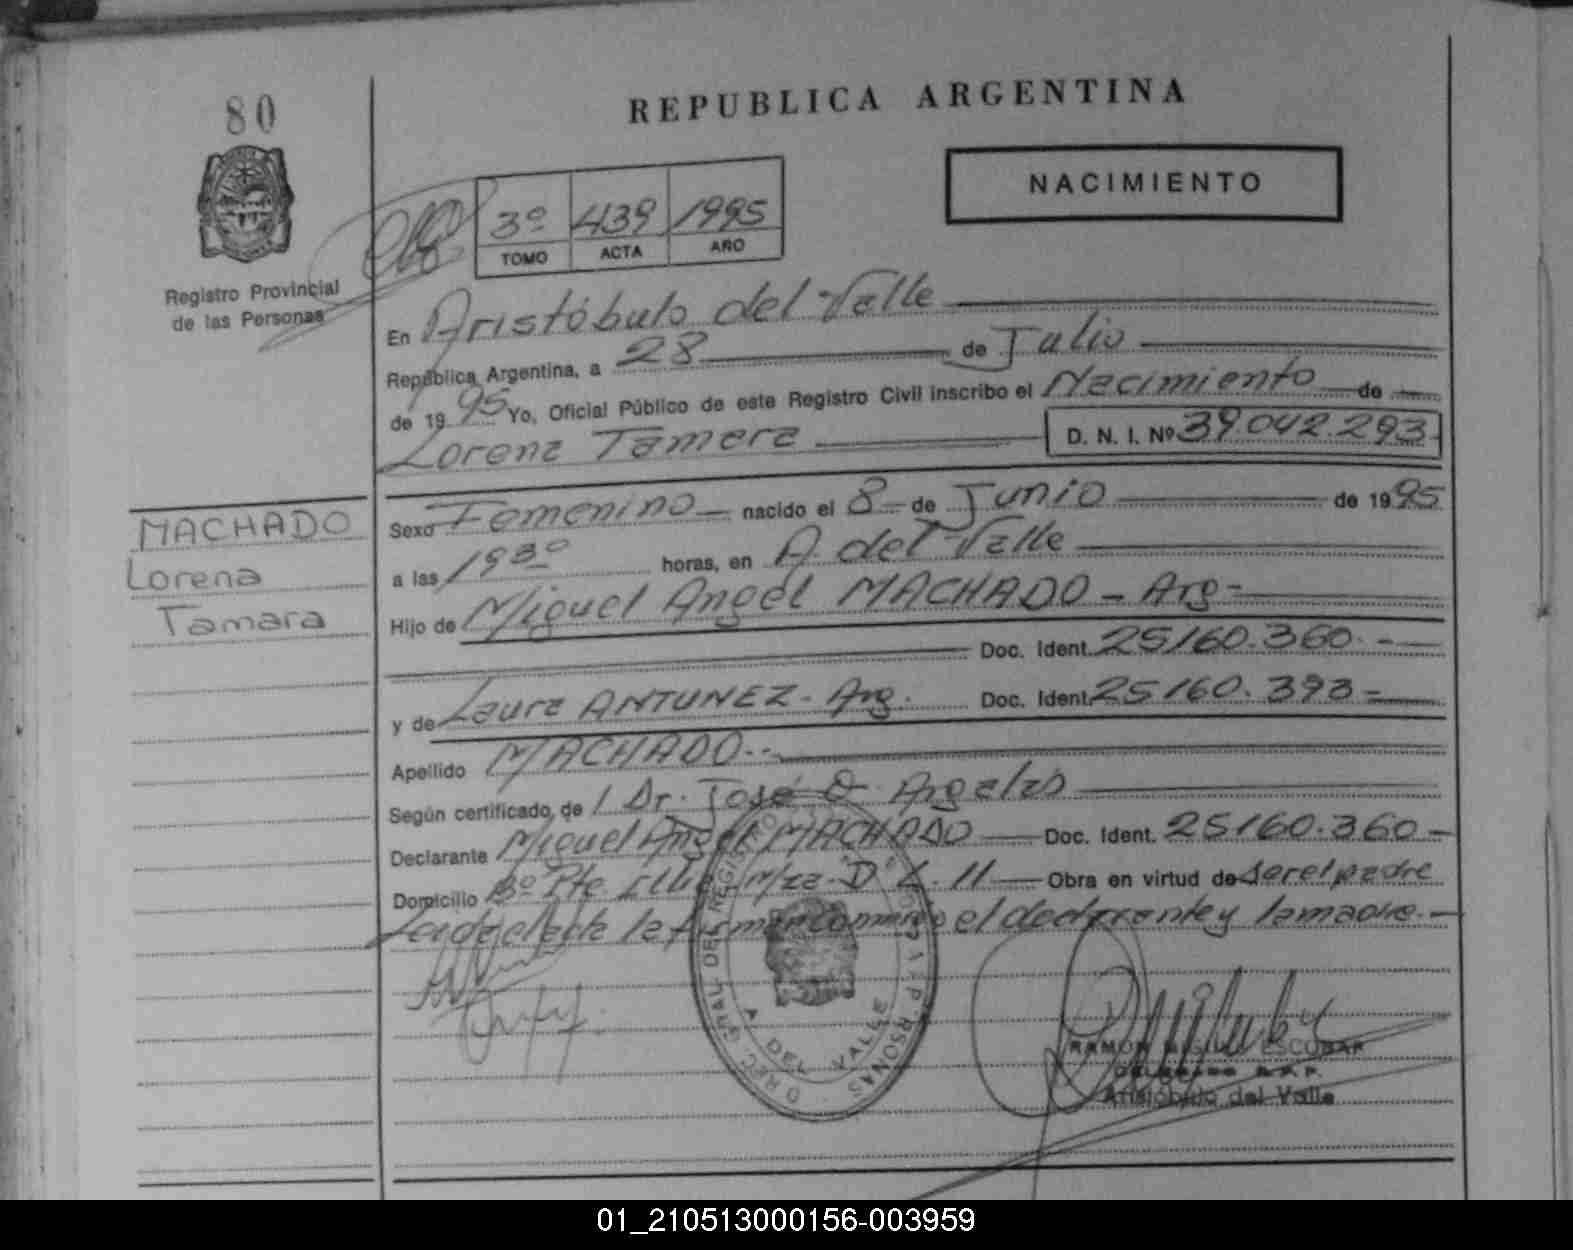 80
REPUBLICA ARGENTINA
NACIMIENTO
3º 439 1995
TOMO ACTA AÑO
Registro Provincial
de las Personas
En Aristóbulo del Valle
República Argentina, a 28 de Julio
de 1995 Yo, Oficial Público de este Registro Civil inscribo el Nacimiento de
Lorena Tamara D. N. I. Nº 39.042.293
MACHADO
Lorena
Tamara
Sexo Femenino nacido el 8 de Junio de 1995
a las 19 30 horas, en A. del Valle
Hijo de Miguel Angel MACHADO - Arg-
Doc. Ident. 25160.360.-
y de Laura ANTUNEZ - Arg. Doc. Ident. 25160.393-
Apellido MACHADO.-
Según certificado de Dr. José O.
Declarante Miguel Angel MACHADO Doc. Ident. 25160.360-
Domicilio Bº Pte. Mza. D L. 11 Obra en virtud de ser el padre
Leida el acta la firman conmigo el declarante y la madre.-
DIREC. GRAL DEL REGISTRO PERSONAS
A. DEL VALLE
RAMON MIGUEL ESCOBAR
DELEGADO R.P.P.
Aristóbulo del Valle
01_210513000156-003959